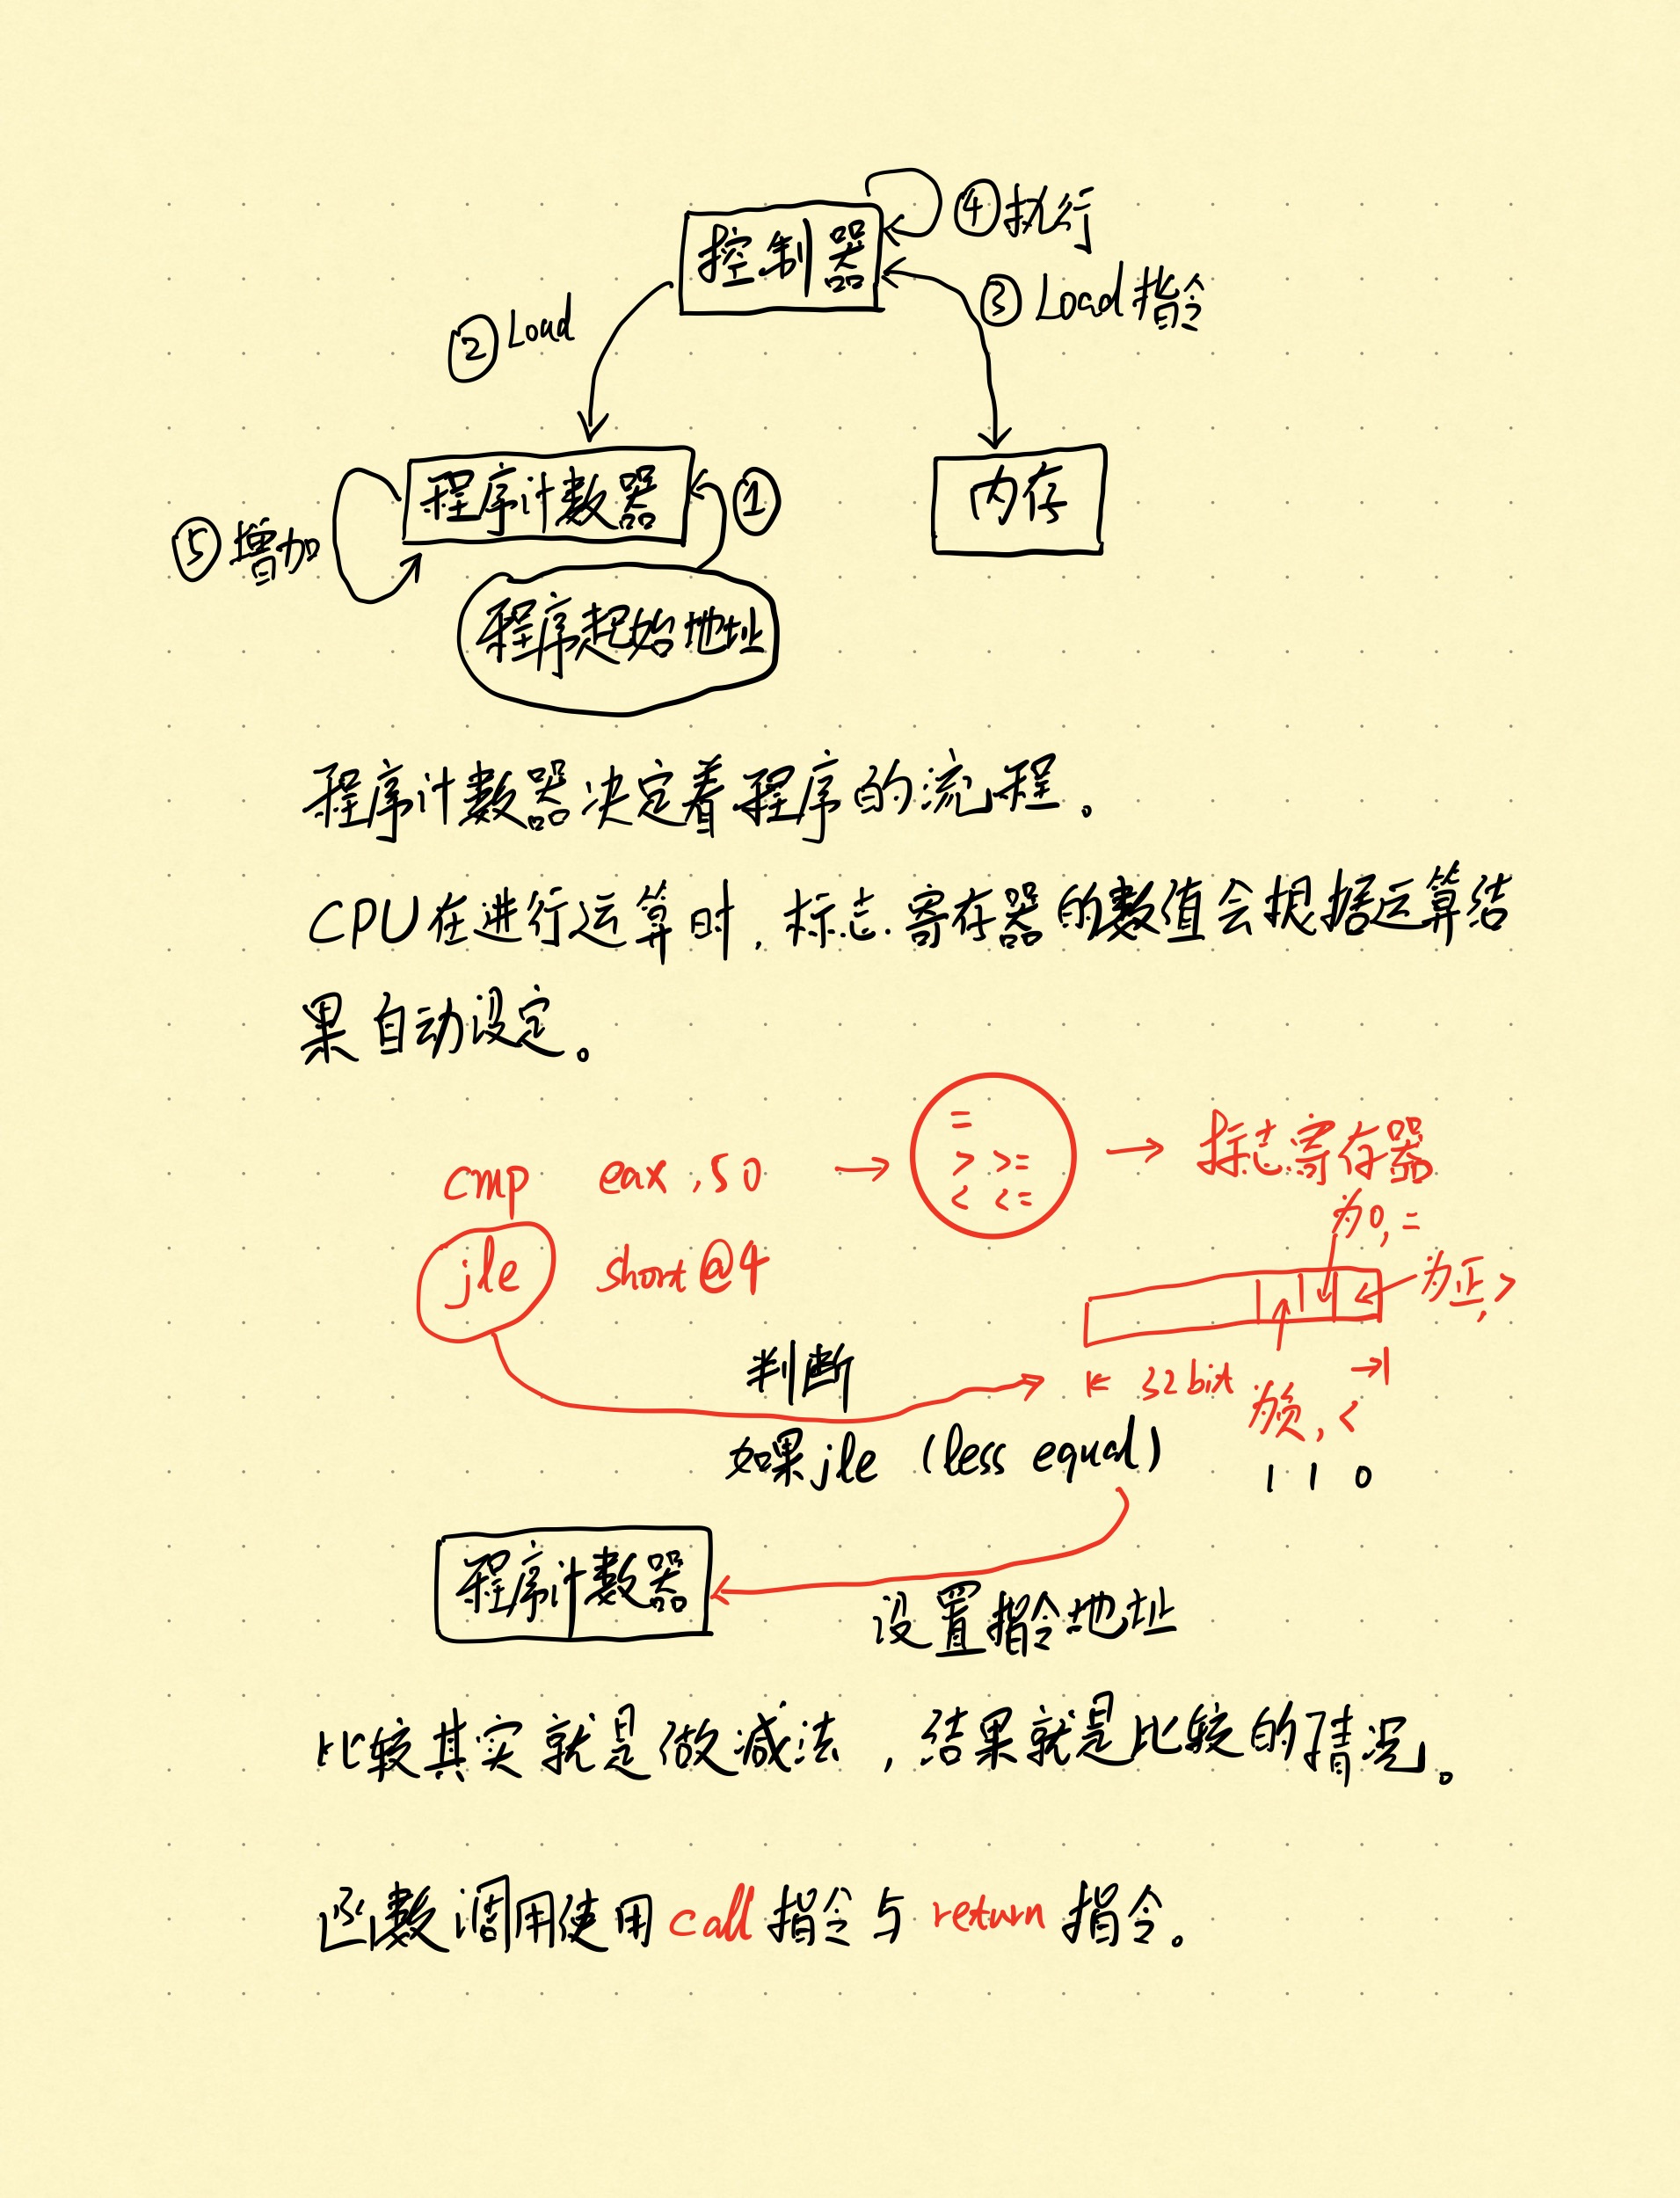 ④执行
控制器
③ Load 指令
② Load
程序计数器
①
内存
⑤ 增加
程序起始地址
程序计数器决定着程序的流程。
CPU在进行运算时,标志寄存器的数值会根据运算结
果自动设定。
cmp eax,50 → = > >= < <= → 标志寄存器
为0,=
jle short@4
为正,>
判断
32 bit
为负,<
如果jle (less equal)
1 1 0
程序计数器
设置指令地址
比较其实就是做减法,结果就是比较的情况。
函数调用使用call指令与return指令。